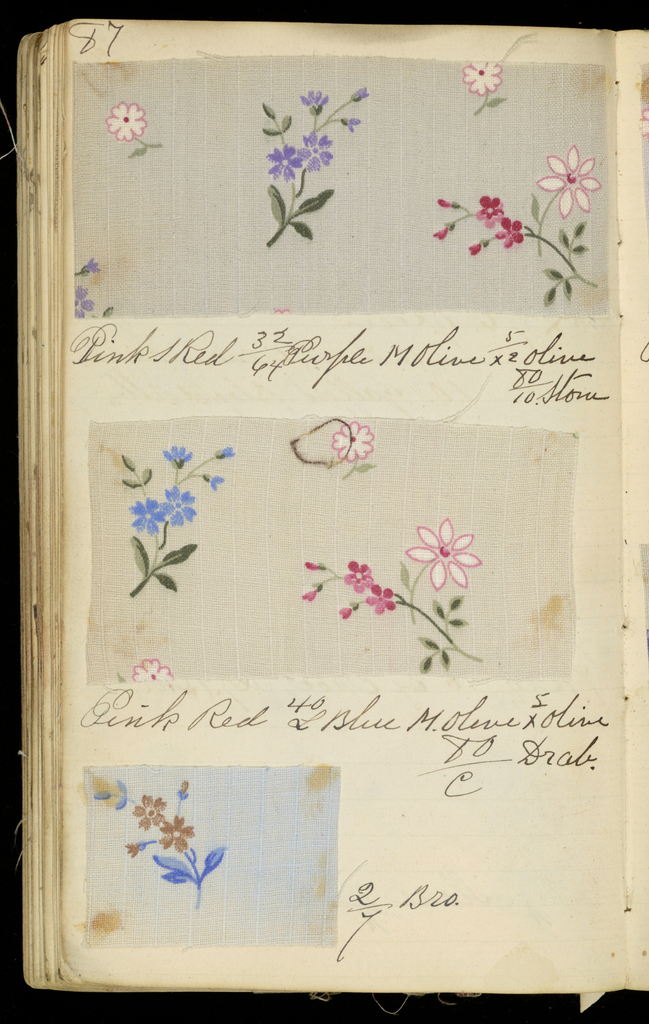 87
Pink & Red 32/64 Purple M Olive 5/x2 Olive
80/10. Stone
Pink Red 40/2 Blue M. Olive 5/x Olive
80/C Drab.
2/7 Bro.